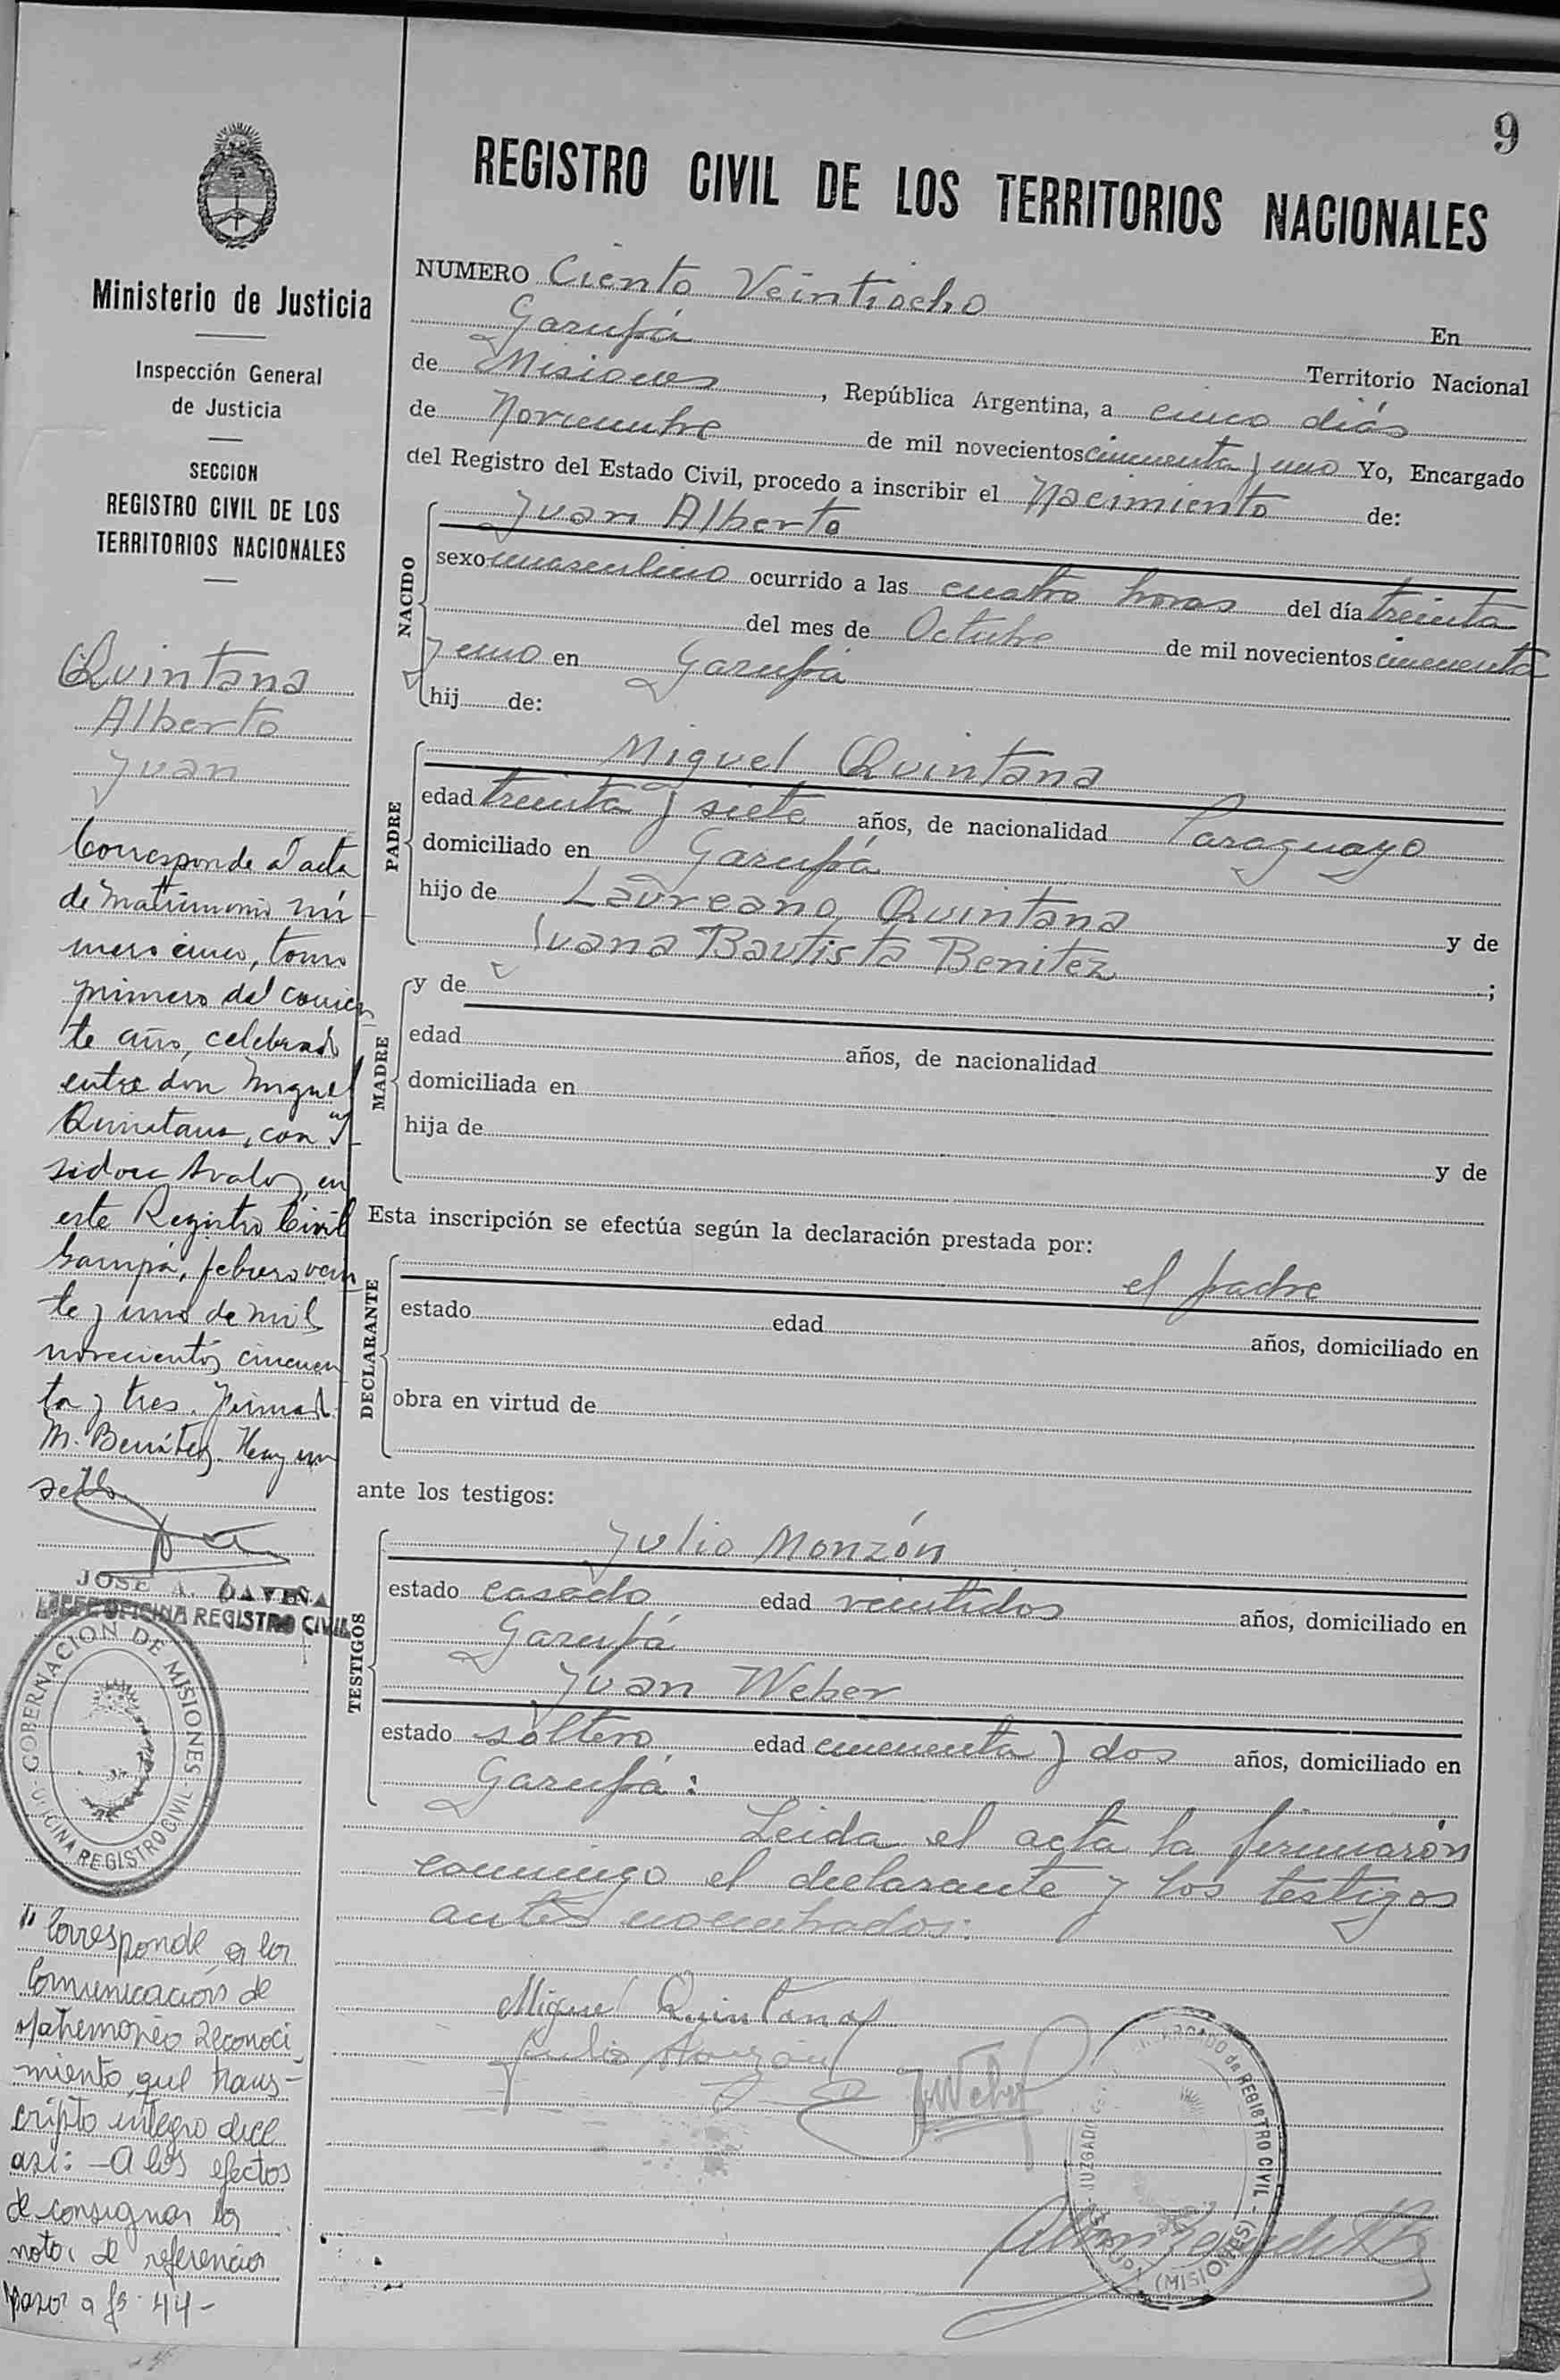 9
REGISTRO CIVIL DE LOS TERRITORIOS NACIONALES
Ministerio de Justicia
Inspección General
de Justicia
SECCION
REGISTRO CIVIL DE LOS
TERRITORIOS NACIONALES
Quintana
Alberto
Juan
Corresponde al acta
de Matrimonio nú
mero cinco, tomo
primero del corrien
te año, celebrado
entre don Miguel
Quintana, con I
sidora Avalos, en
este Registro Civil
Garupá, febrero vein
te y uno de mil
novecientos cincuen
ta y tres. Firmado
M. Benítez. Hay un
sello
JOSE A. DAVIÑA
JEFE OFICINA REGISTRO CIVIL
GOBERNACION DE MISIONES
OFICINA REGISTRO CIVIL
Corresponde a la
Comunicación de
Matremonio Reconoci
miento, que trans-
cripto integro dice
asi: - A los efectos
de consignar la
nota de referencia
pasar a fs. 44-
NUMERO Ciento Veintiocho En
Garupá Territorio Nacional
de Misiones, República Argentina, a cinco días
de Noviembre de mil novecientos cincuenta y uno Yo, Encargado
del Registro del Estado Civil, procedo a inscribir el Nacimiento de:
NACIDO
Juan Alberto
sexo masculino ocurrido a las cuatro horas del día treinta
del mes de Octubre de mil novecientos cincuenta
y uno en Garupá
hij de:
PADRE
Miguel Quintana
edad treinta y siete años, de nacionalidad Paraguayo
domiciliado en Garupá
hijo de Laureano Quintana y de
Juana Bautista Benitez ;
MADRE
y de
edad años, de nacionalidad
domiciliada en
hija de
y de
Esta inscripción se efectúa según la declaración prestada por:
DECLARANTE
el padre
estado edad años, domiciliado en
obra en virtud de
ante los testigos:
TESTIGOS
Julio Monzón
estado casado edad veintidos años, domiciliado en
Garupá
Juan Weber
estado soltero edad cincuenta y dos años, domiciliado en
Garupá:
Leida el acta la firmarón
conmigo el declarante y los testigos
antes nombrados:
Miguel Quintana
Julio Monzón
J Weber
JUZGADO REGISTRO CIVIL
(MISIONES)